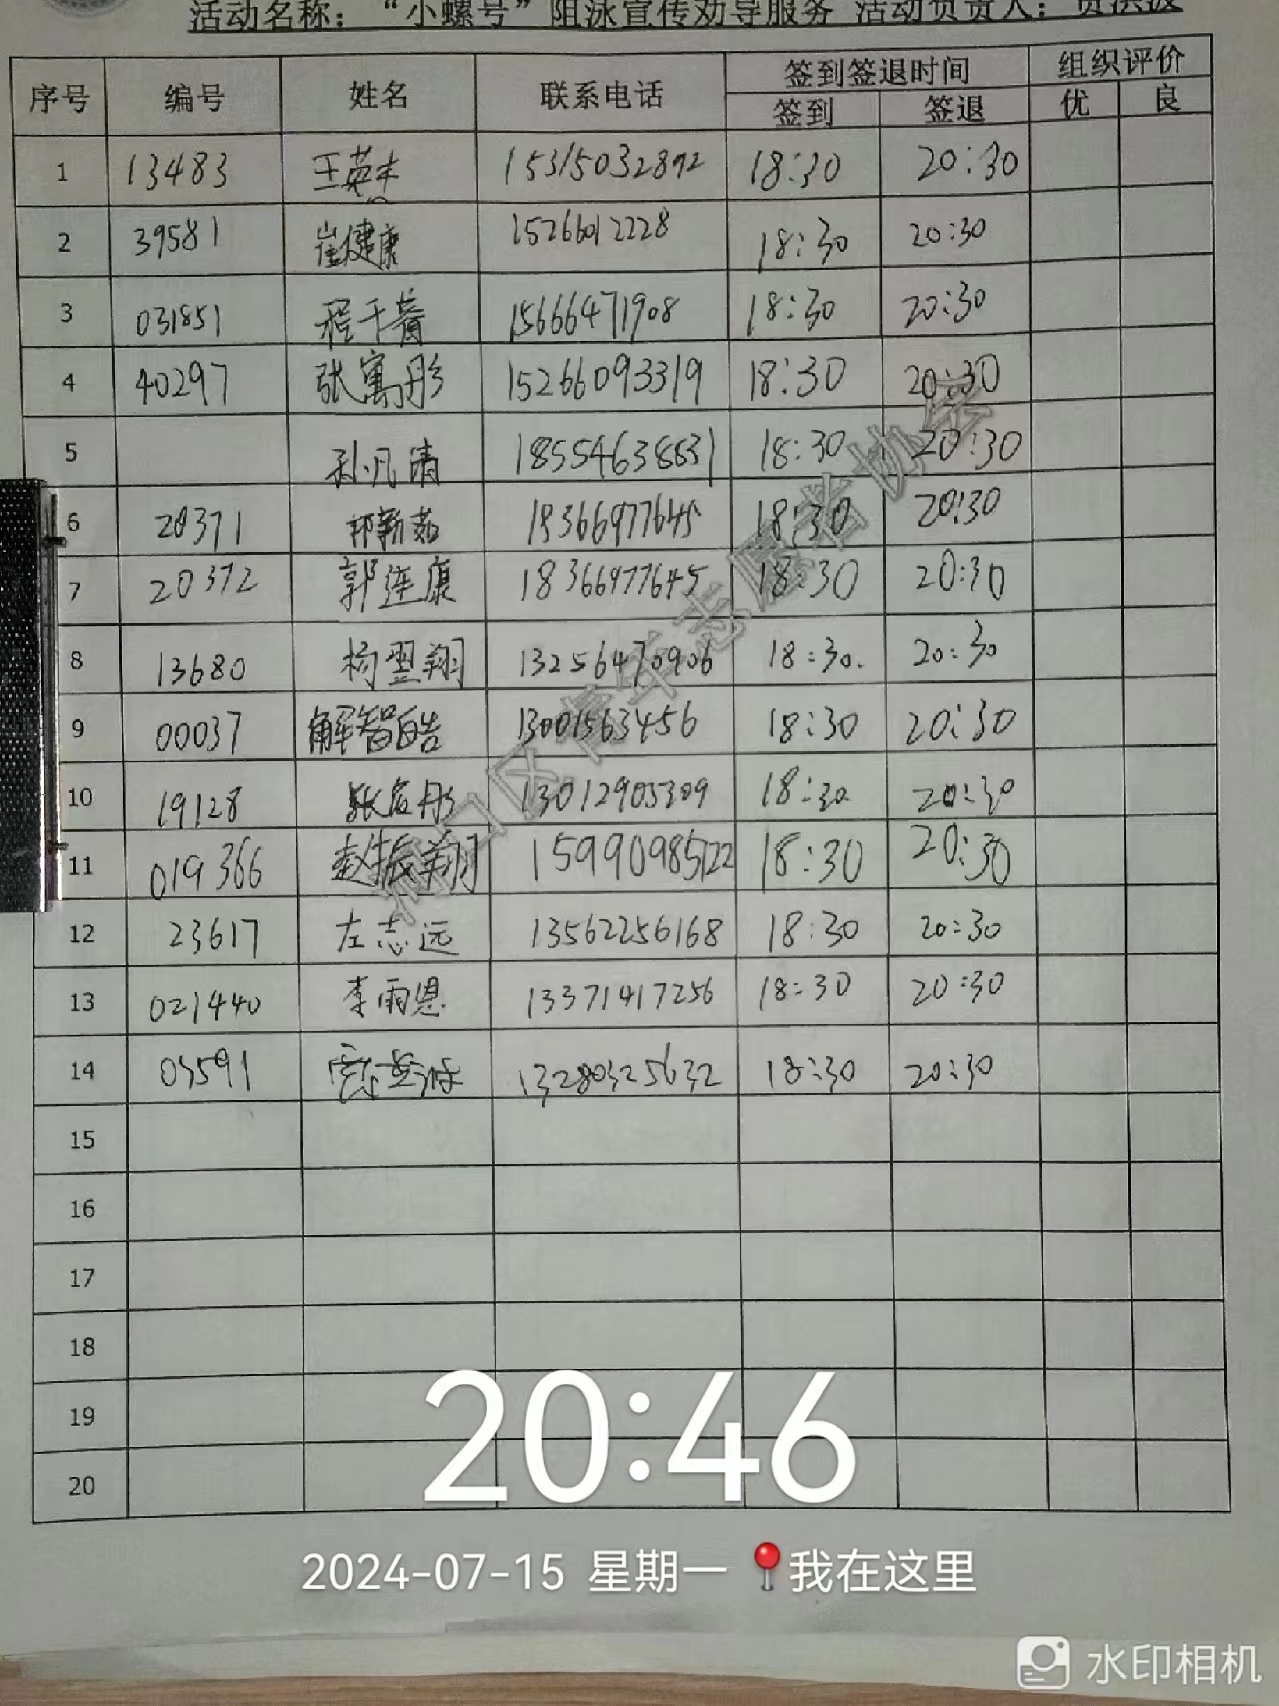 活动名称：“小螺号”阻泳宣传劝导服务 活动负责人：贾洪波
序号 编号 姓名 联系电话 签到签退时间 组织评价
签到 签退 优 良
1 13483 王英杰 15315032892 18:30 20:30
2 39581 崔健康 15266012228 18:30 20:30
3 031851 程千蕾 15666471908 18:30 20:30
4 40297 张寓彤 15266093319 18:30 20:30
5 孙凡清 18554638831 18:30 20:30
6 20371 祁新茹 18366977645 18:30 20:30
7 20372 郭连康 18366977645 18:30 20:30
8 13680 杨翌翔 13256470906 18:30. 20:30
9 00037 解智皓 13001563456 18:30 20:30
10 19128 张启彤 13012905309 18:30 20:30
11 019366 赵振翔 15990985122 18:30 20:30
12 23617 左志远 13562256168 18:30 20:30
13 021440 李雨恩 13371417256 18:30 20:30
14 03591 13280325632 18:30 20:30
15
16
17
18
19
20
河口区青年志愿者协会
20:46
2024-07-15 星期一 我在这里
水印相机